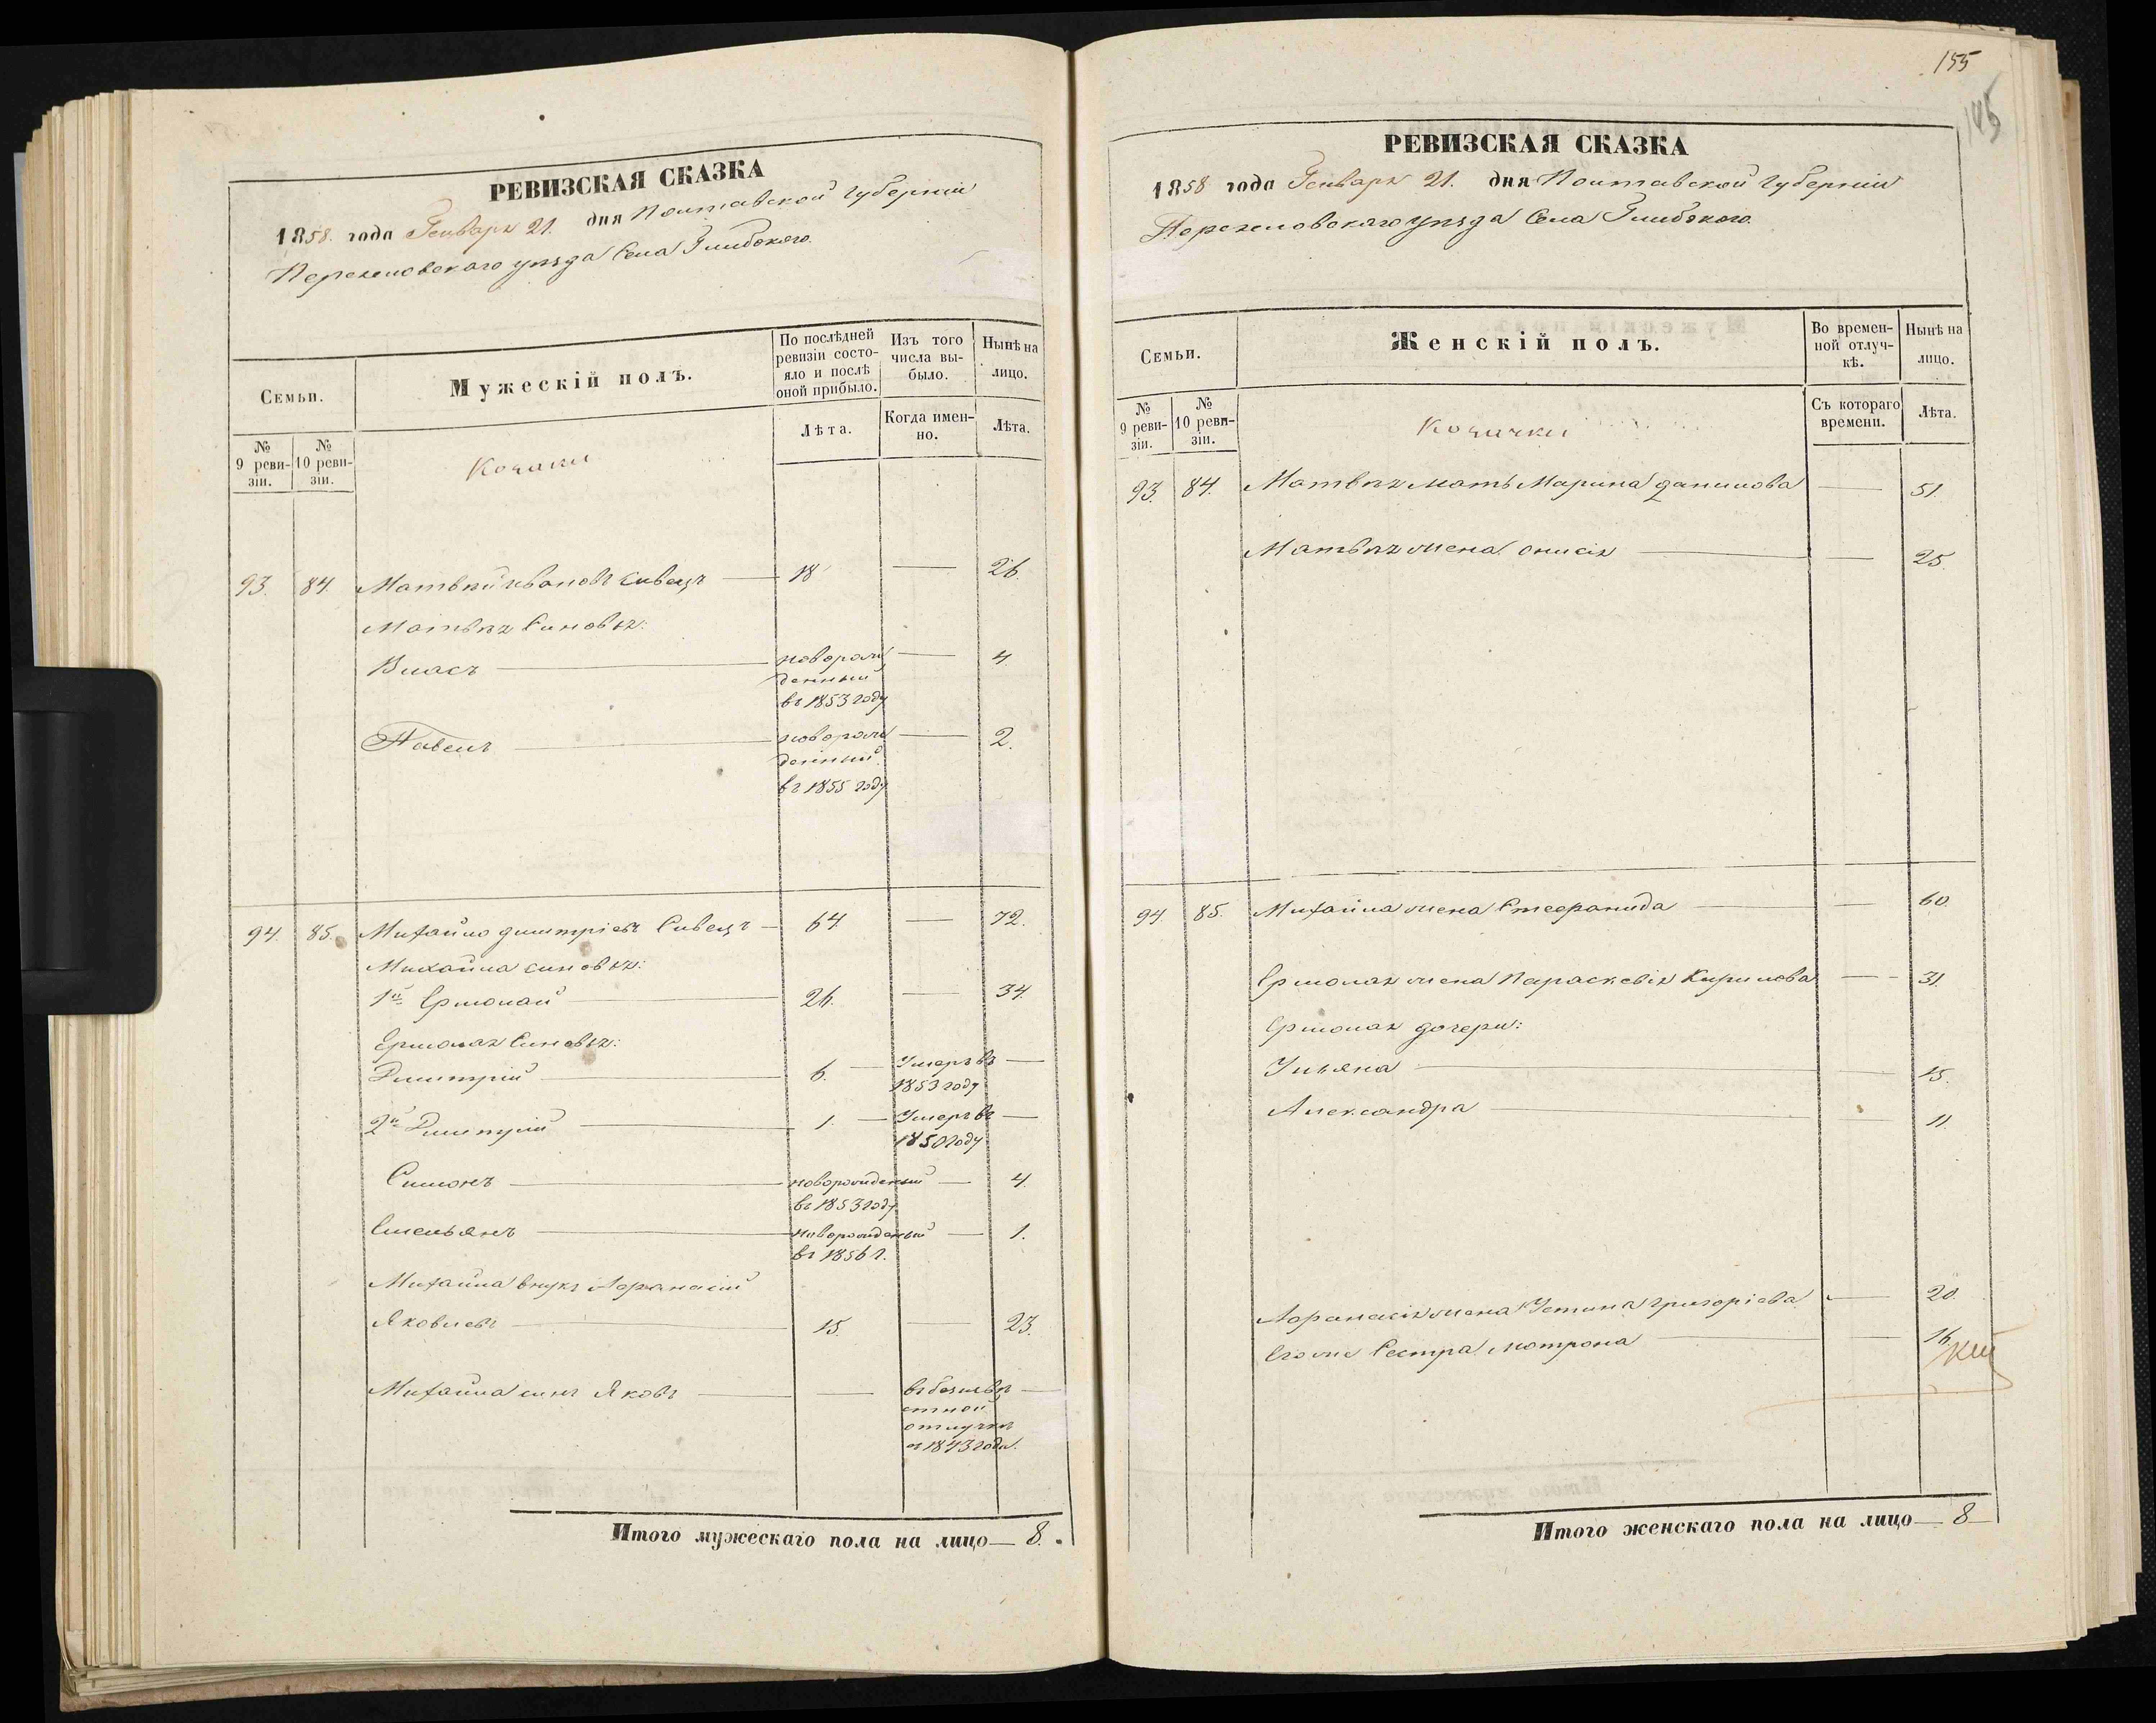 РЕВИЗСКАЯ СКАЗКА
1858. года Генваря 21. дня Полтавской губерніи
Переяславскаго уѣзда Села Глибокого.
Семьи.
Мужескій полъ.
По послѣдней ревизіи состояло и послѣ оной прибыло.
Изъ того числа выбыло.
Нынѣ на лицо.
№ 9 ревизіи.
№ 10 ревизіи.
Козаки
Лѣта.
Когда именно.
Лѣта.
93. 84. Матвѣй Ивановъ Сивецъ — 18 — 26.
Матвѣя Синовья:
Власъ — новорожденный — 4.
въ 1853 году
Павелъ — новорожденный — 2.
въ 1855 году
94. 85. Михайло Дмитріевъ Сивецъ — 64. — 72.
Михайла синовья:
1й Ермолай — 26. — 34.
Ермолая Синовья:
Дмитрій — 6. — Умеръ въ —
1853 году
2й Дмитрій — 1. — Умеръ въ —
1850 году
Симонъ — новорожденый — 4.
въ 1853 году
Емельянъ — новорожденый — 1.
въ 1856 г.
Михайла внукъ Афанасій
Яковлевъ — 15. — 23.
Михайла синъ Яковъ — — въ безизвѣ —
стной
отлучкѣ
съ 1843 года.
Итого мужескаго пола на лицо — 8.
155
145
РЕВИЗСКАЯ СКАЗКА
1858 года Генваря 21. дня Полтавской губерніи
Переяславскаго уѣзда Села Глибокого.
Семьи.
Женскій полъ.
Во временной отлучкѣ.
Нынѣ на лицо.
№ 9 ревизіи.
№ 10 ревизіи.
Козачки
Съ котораго времени.
Лѣта.
93. 84. Матвѣя мать Марина Данилова — 51.
Матвѣя жена Онисія — — 25.
94. 85. Михайла жена Стефанида — — 60
Ермолая жена Параскевія Кирилова — — 31.
Ермолая дочери:
Ульяна — — 15.
Александра — — 11.
Афанасія жена Устина Григоріева — 20.
Его же Сестра Мотрона — — 16.
Итого женскаго пола на лицо — 8 —